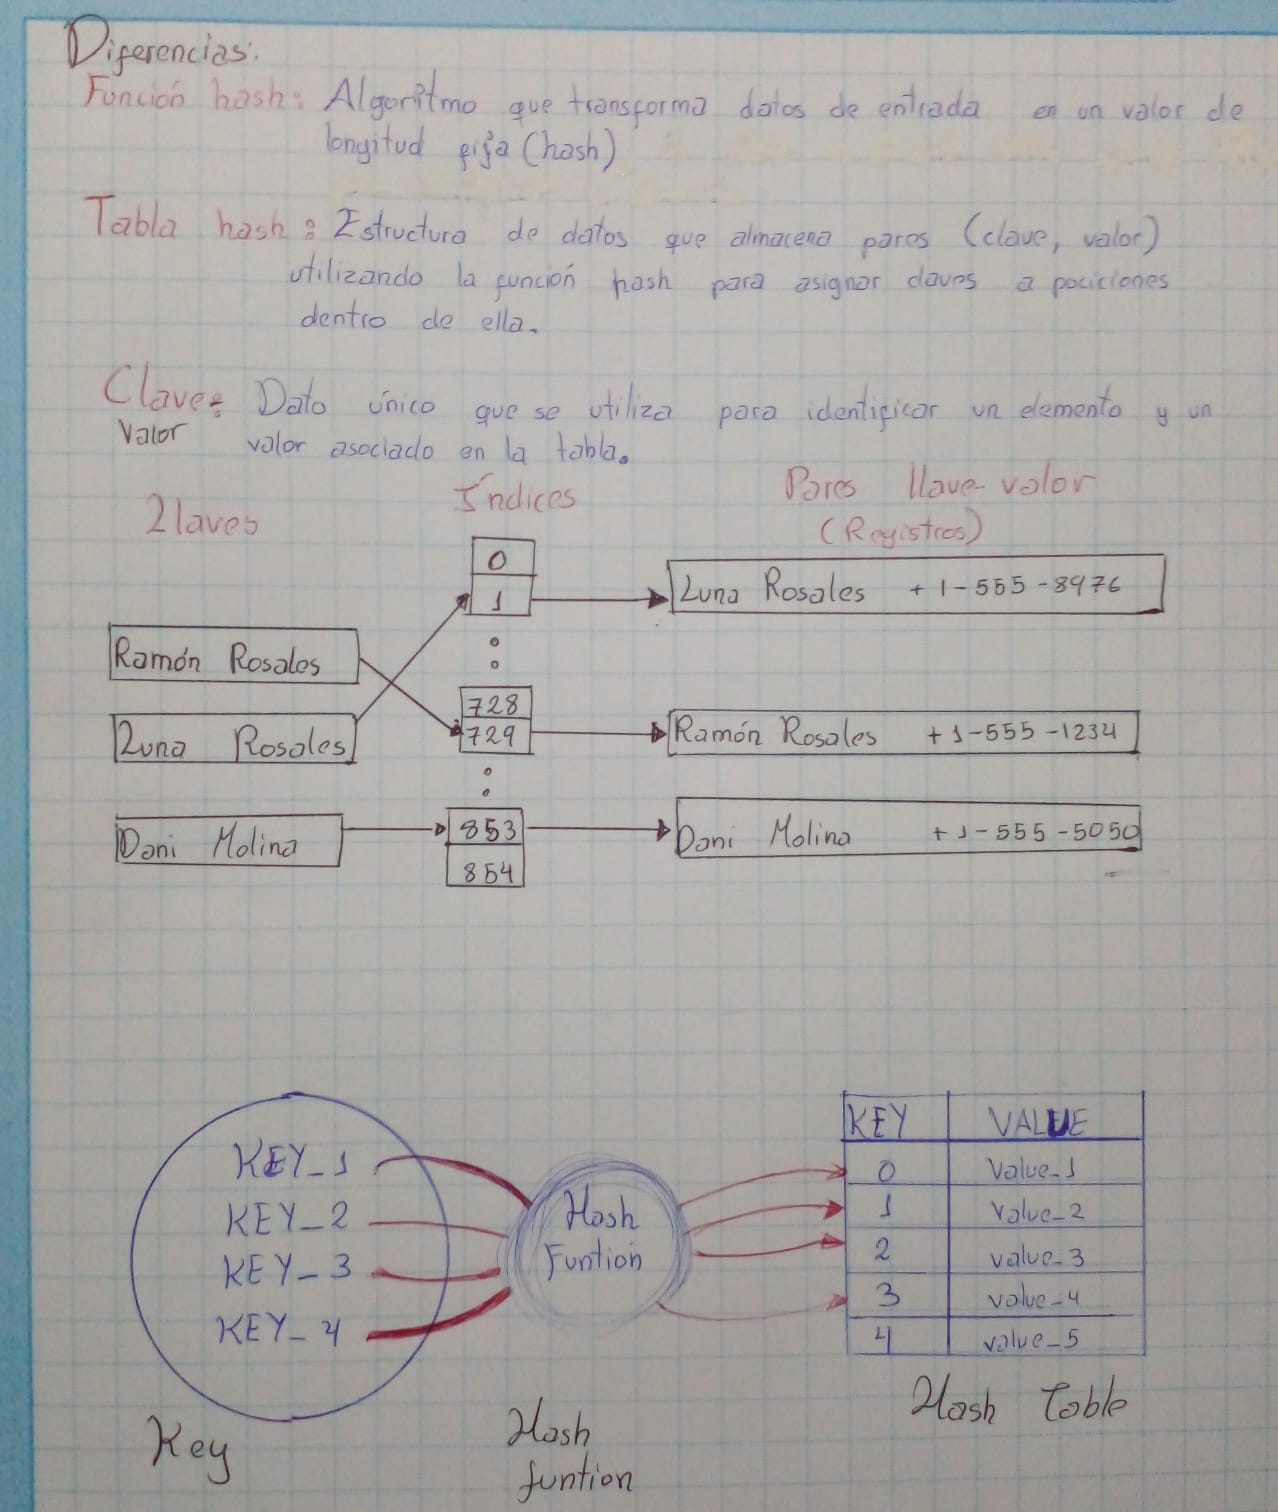 Diferencias:
Función hash: Algoritmo que transforma datos de entrada en un valor de
longitud fija (hash)
Tabla hash: Estructura de datos que almacena pares (clave, valor)
utilizando la función hash para asignar claves a posiciones
dentro de ella.
Clave: Dato único que se utiliza para identificar un elemento y un
Valor valor asociado en la tabla.
Llaves Índices Pares llave-valor
(Registros)
0
1 Luna Rosales +1-555-8976
Ramón Rosales
728
Luna Rosales 729 Ramón Rosales +1-555-1234
Dani Molina 853 Dani Molina +1-555-5050
854
KEY VALUE
KEY_1 0 Value_1
KEY_2 Hash 1 Value_2
KEY_3 Funtion 2 value_3
KEY_4 3 value_4
4 value_5
Key Hash Hash Table
funtion